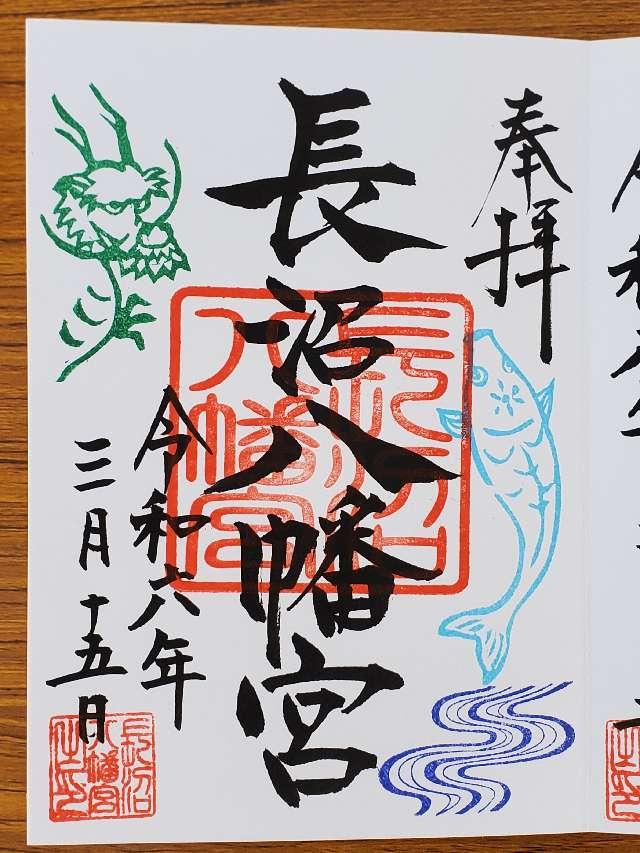 奉拝
長沼八幡宮
長沼八幡宮
令和六年
三月十五日
長沼八幡宮